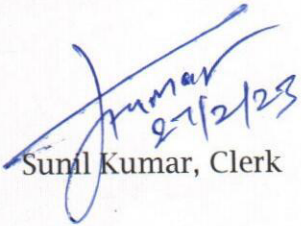 Kumar
27/2/23
Sunil Kumar, Clerk